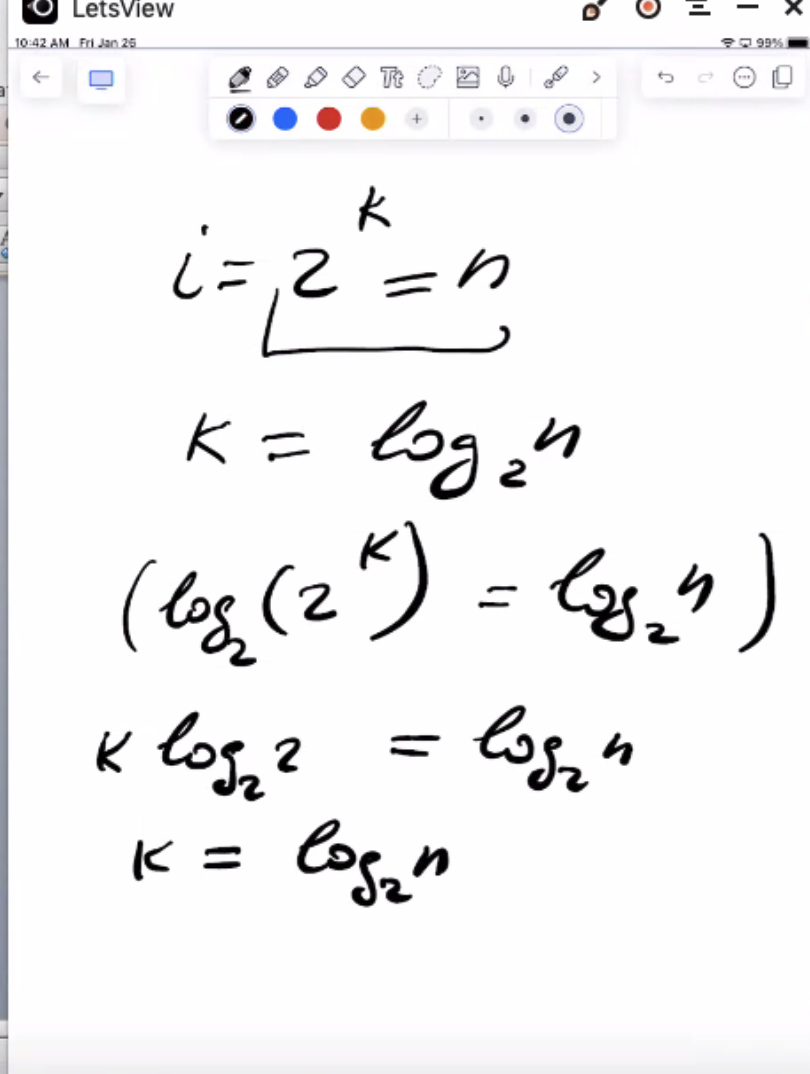 LetsView
10:42 AM Fri Jan 26 99%
Tt
i = 2^k = n
k = log₂ n
(log₂(2^k) = log₂ n)
k log₂ 2 = log₂ n
k = log₂ n